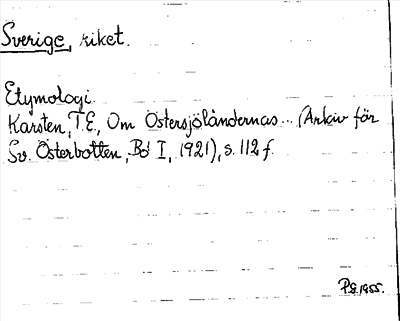 Sverige, riket.
Etymologi.
Karsten, T.E., Om Östersjöländernas... (Arkiv för
Sv. Österbotten, Bd I, 1921), s. 112 f.
P.G. 1955.